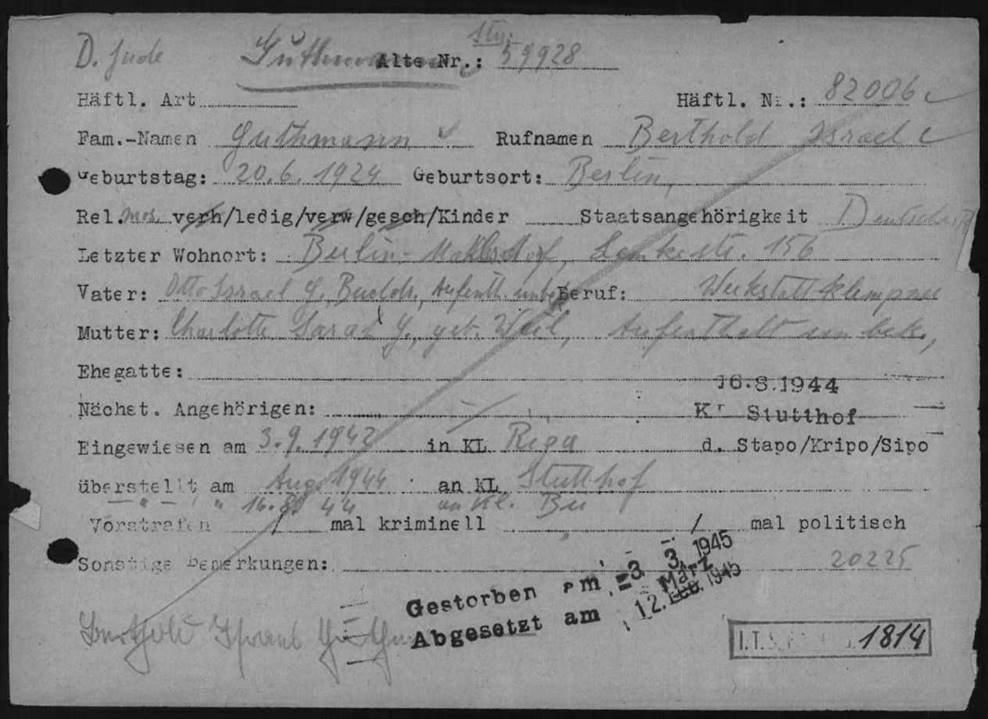 Stu.
D. Jude Guthmann Alte Nr.: 59928
Häftl. Art Häftl. Nr.: 82006
Fam.-Namen Guthmann Rufnamen Berthold Israel
Geburtstag: 20.6.1924 Geburtsort: Berlin,
Rel. mos. verh/ledig/verw/gesch/Kinder Staatsangehörigkeit Deutsch
Letzter Wohnort: Berlin-Mahlsdorf, Lenkestr. 156
Vater: Otto Israel G., Buchh., Aufenth. unbe Beruf: Werkstattklempner
Mutter: Charlotte Sarah G., geb. Weil, Aufenthalt unbek.,
Ehegatte:
16.8.1944
Nächst. Angehörigen: — Kl Stutthof
Eingewiesen am 3.9.1942 in KL Riga d. Stapo/Kripo/Sipo
überstellt am Aug. 1944 an KL Stutthof
— " — " 16.8. 44 an Kl. Bu
Vorstrafen / mal kriminell / mal politisch
Sonstige Bemerkungen: 20225
Gestorben am -3. 3. 1945
Abgesetzt am 12. März Feb. 1945
Berthold Israel
I.T.S. 1814